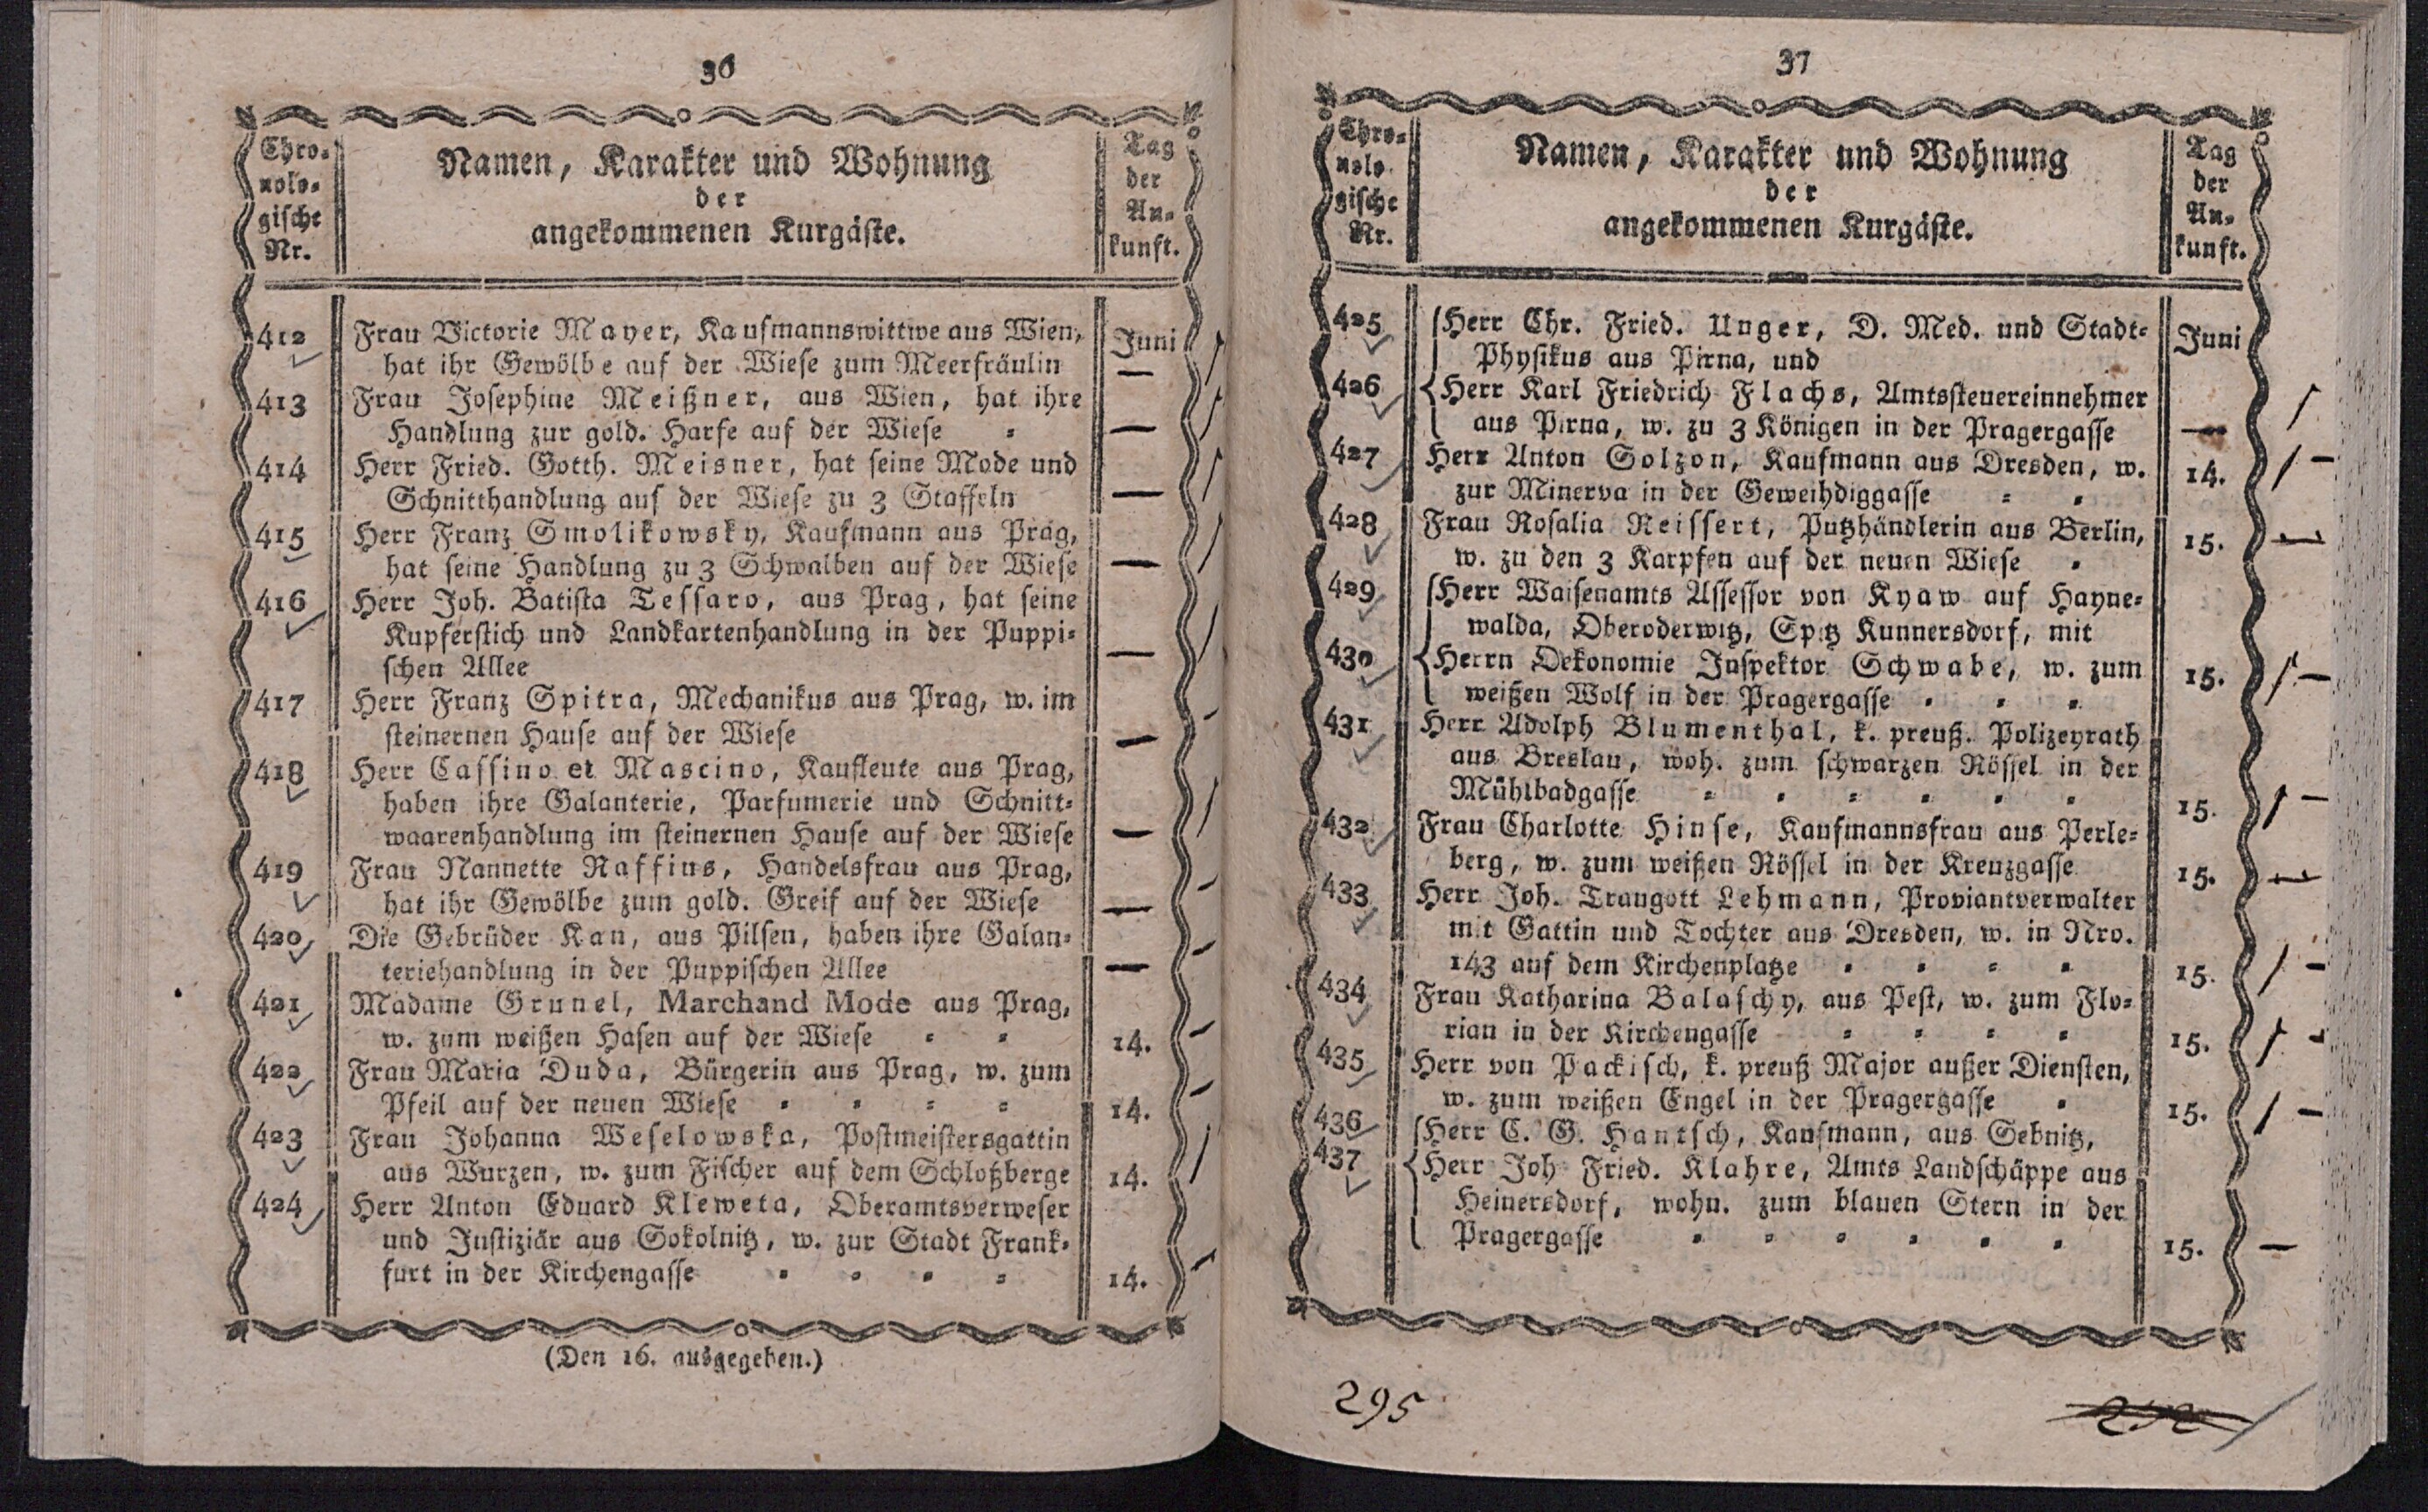 36
Chro-
nolo-
gische
Nr.
Namen, Karakter und Wohnung
der
angekommenen Kurgäste.
Tag
der
An-
kunft.
412 Frau Victorie Mayer, Kaufmannswittwe aus Wien, Juni
hat ihr Gewölbe auf der Wiese zum Meerfräulin —
413 Frau Josephine Meißner, aus Wien, hat ihre
Handlung zur gold. Harfe auf der Wiese = —
414 Herr Fried. Gotth. Meisner, hat seine Mode und
Schnitthandlung auf der Wiese zu 3 Staffeln —
415 Herr Franz Smolikowsky, Kaufmann aus Prag,
hat seine Handlung zu 3 Schwalben auf der Wiese —
416 Herr Joh. Batista Tessaro, aus Prag, hat seine
Kupferstich und Landkartenhandlung in der Puppi-
schen Allee —
417 Herr Franz Spitra, Mechanikus aus Prag, w. im
steinernen Hause auf der Wiese —
418 Herr Cassino et Mascino, Kaufleute aus Prag,
haben ihre Galanterie, Parfumerie und Schnitt-
waarenhandlung im steinernen Hause auf der Wiese —
419 Frau Nannette Raffius, Handelsfrau aus Prag,
hat ihr Gewölbe zum gold. Greif auf der Wiese —
420 Die Gebrüder Kan, aus Pilsen, haben ihre Galan-
teriehandlung in der Puppischen Allee —
421 Madame Grunel, Marchand Mode aus Prag,
w. zum weißen Hasen auf der Wiese = = 14.
422 Frau Maria Duda, Bürgerin aus Prag, w. zum
Pfeil auf der neuen Wiese = = = = 14.
423 Frau Johanna Weselowska, Postmeistersgattin
aus Wurzen, w. zum Fischer auf dem Schloßberge 14.
424 Herr Anton Eduard Kleweta, Oberamtsverweser
und Justiziär aus Sokolnitz, w. zur Stadt Frank-
furt in der Kirchengasse = = = = 14.
(Den 16. ausgegeben.)
37
Chro-
nolo-
gische
Nr.
Namen, Karakter und Wohnung
der
angekommenen Kurgäste.
Tag
der
An-
kunft.
425 Herr Chr. Fried. Unger, D. Med. und Stadt- Juni
Physikus aus Pirna, und
426 Herr Karl Friedrich Flachs, Amtssteuereinnehmer
aus Pirna, w. zu 3 Königen in der Pragergasse —
427 Herr Anton Golzon, Kaufmann aus Dresden, w. 14.
zur Minerva in der Geweihdiggasse = =
428 Frau Rosalia Reissert, Putzhändlerin aus Berlin,
w. zu den 3 Karpfen auf der neuen Wiese = 15.
429 Herr Waisenamts Assessor von Kyaw auf Hayne-
walda, Oberoderwitz, Spitz Kunnersdorf, mit
430 Herrn Oekonomie Inspektor Schwabe, w. zum
weißen Wolf in der Pragergasse = = = 15.
431 Herr Adolph Blumenthal, k. preuß. Polizeyrath
aus Breslau, woh. zum schwarzen Rössel in der
Mühlbadgasse = = = = = = 15.
432 Frau Charlotte Hinse, Kaufmannsfrau aus Perle-
berg, w. zum weißen Rössel in der Kreuzgasse 15.
433 Herr Joh. Traugott Lehmann, Proviantverwalter
mit Gattin und Tochter aus Dresden, w. in Nro.
143 auf dem Kirchenplatze = = = = 15.
434 Frau Katharina Balaschy, aus Pest, w. zum Flo-
rian in der Kirchengasse = = = = 15.
435 Herr von Packisch, k. preuß Major außer Diensten,
w. zum weißen Engel in der Pragergasse = 15.
436 Herr C. G. Hantsch, Kaufmann, aus Sebnitz,
437 Herr Joh Fried. Klahre, Amts Landschäppe aus
Heinersdorf, wohn. zum blauen Stern in der
Pragergasse = = = = = = 15.
295